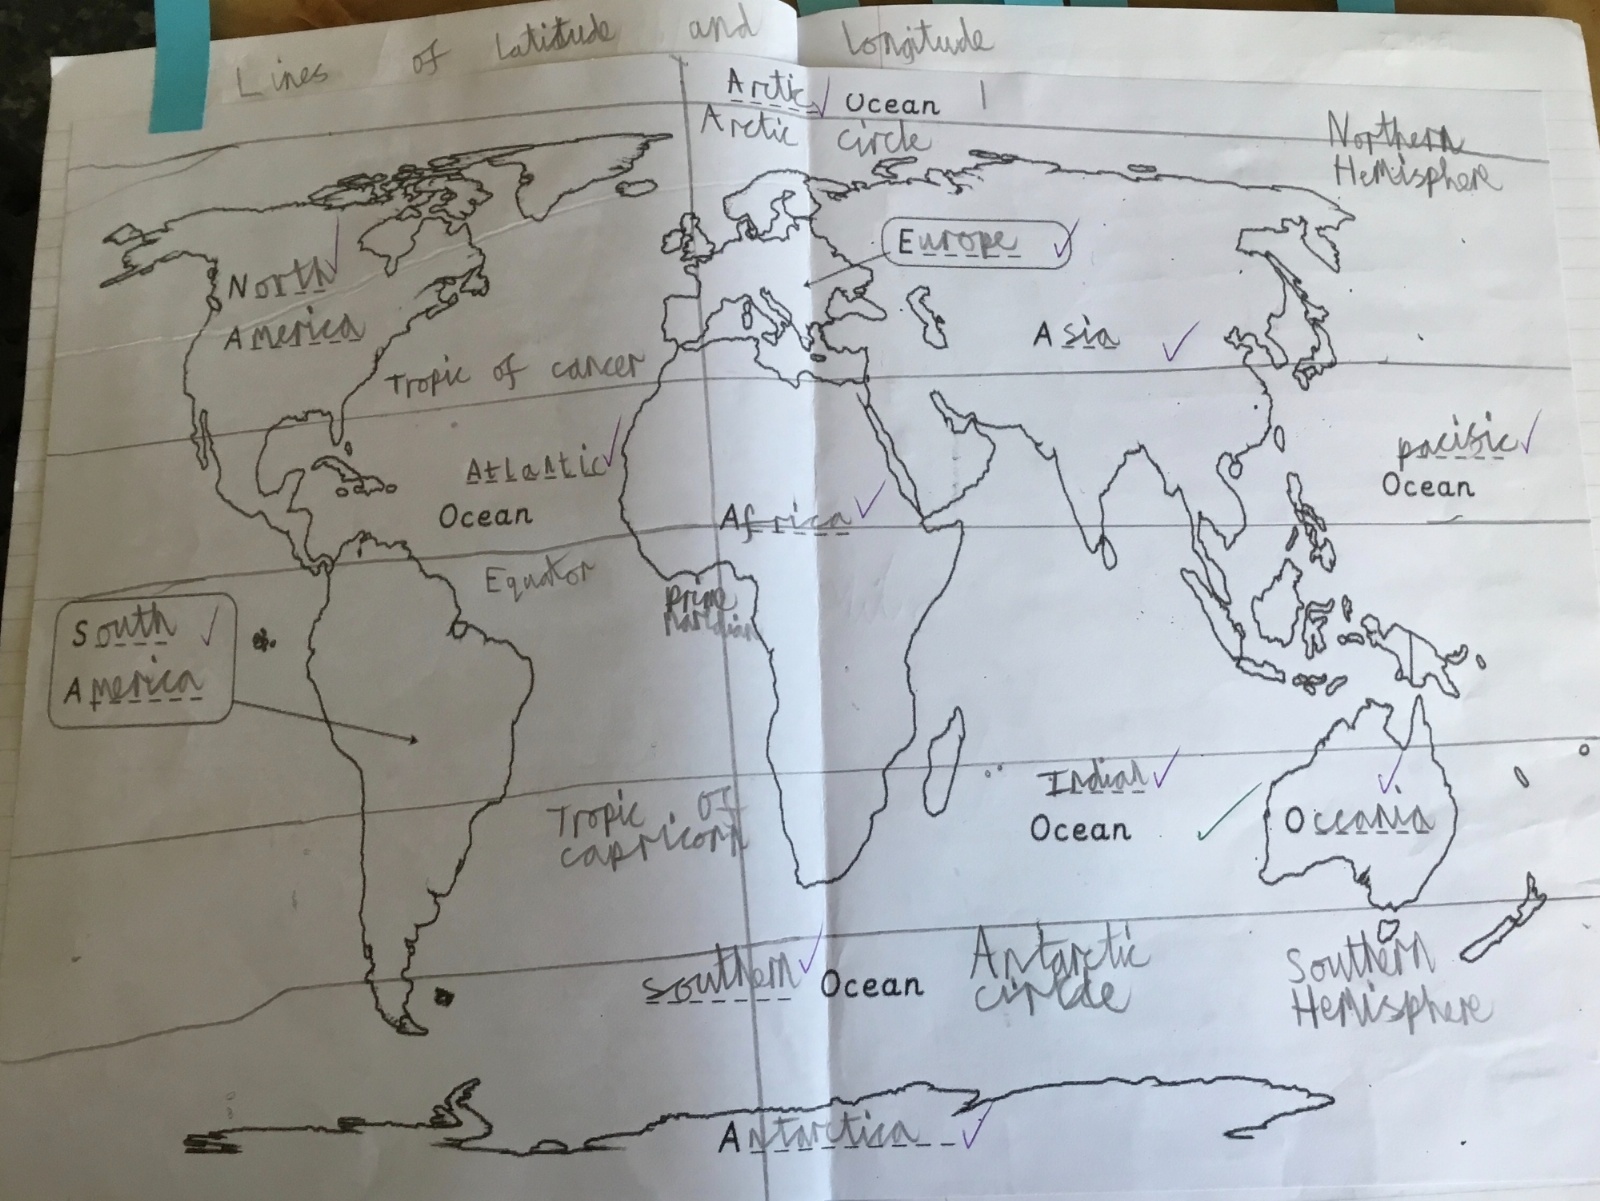 Lines of Latitude and Longitude
Arctic Ocean
Arctic circle
Northern
Hemisphere
Europe
North
America
Asia
Tropic of cancer
pacific
Ocean
Atlantic
Ocean
Africa
Equator
Prime
South
America
Indian
Ocean
Oceania
Tropic of
capricorn
Southern Ocean
Antarctic
Southern
Hemisphere
Antarctica